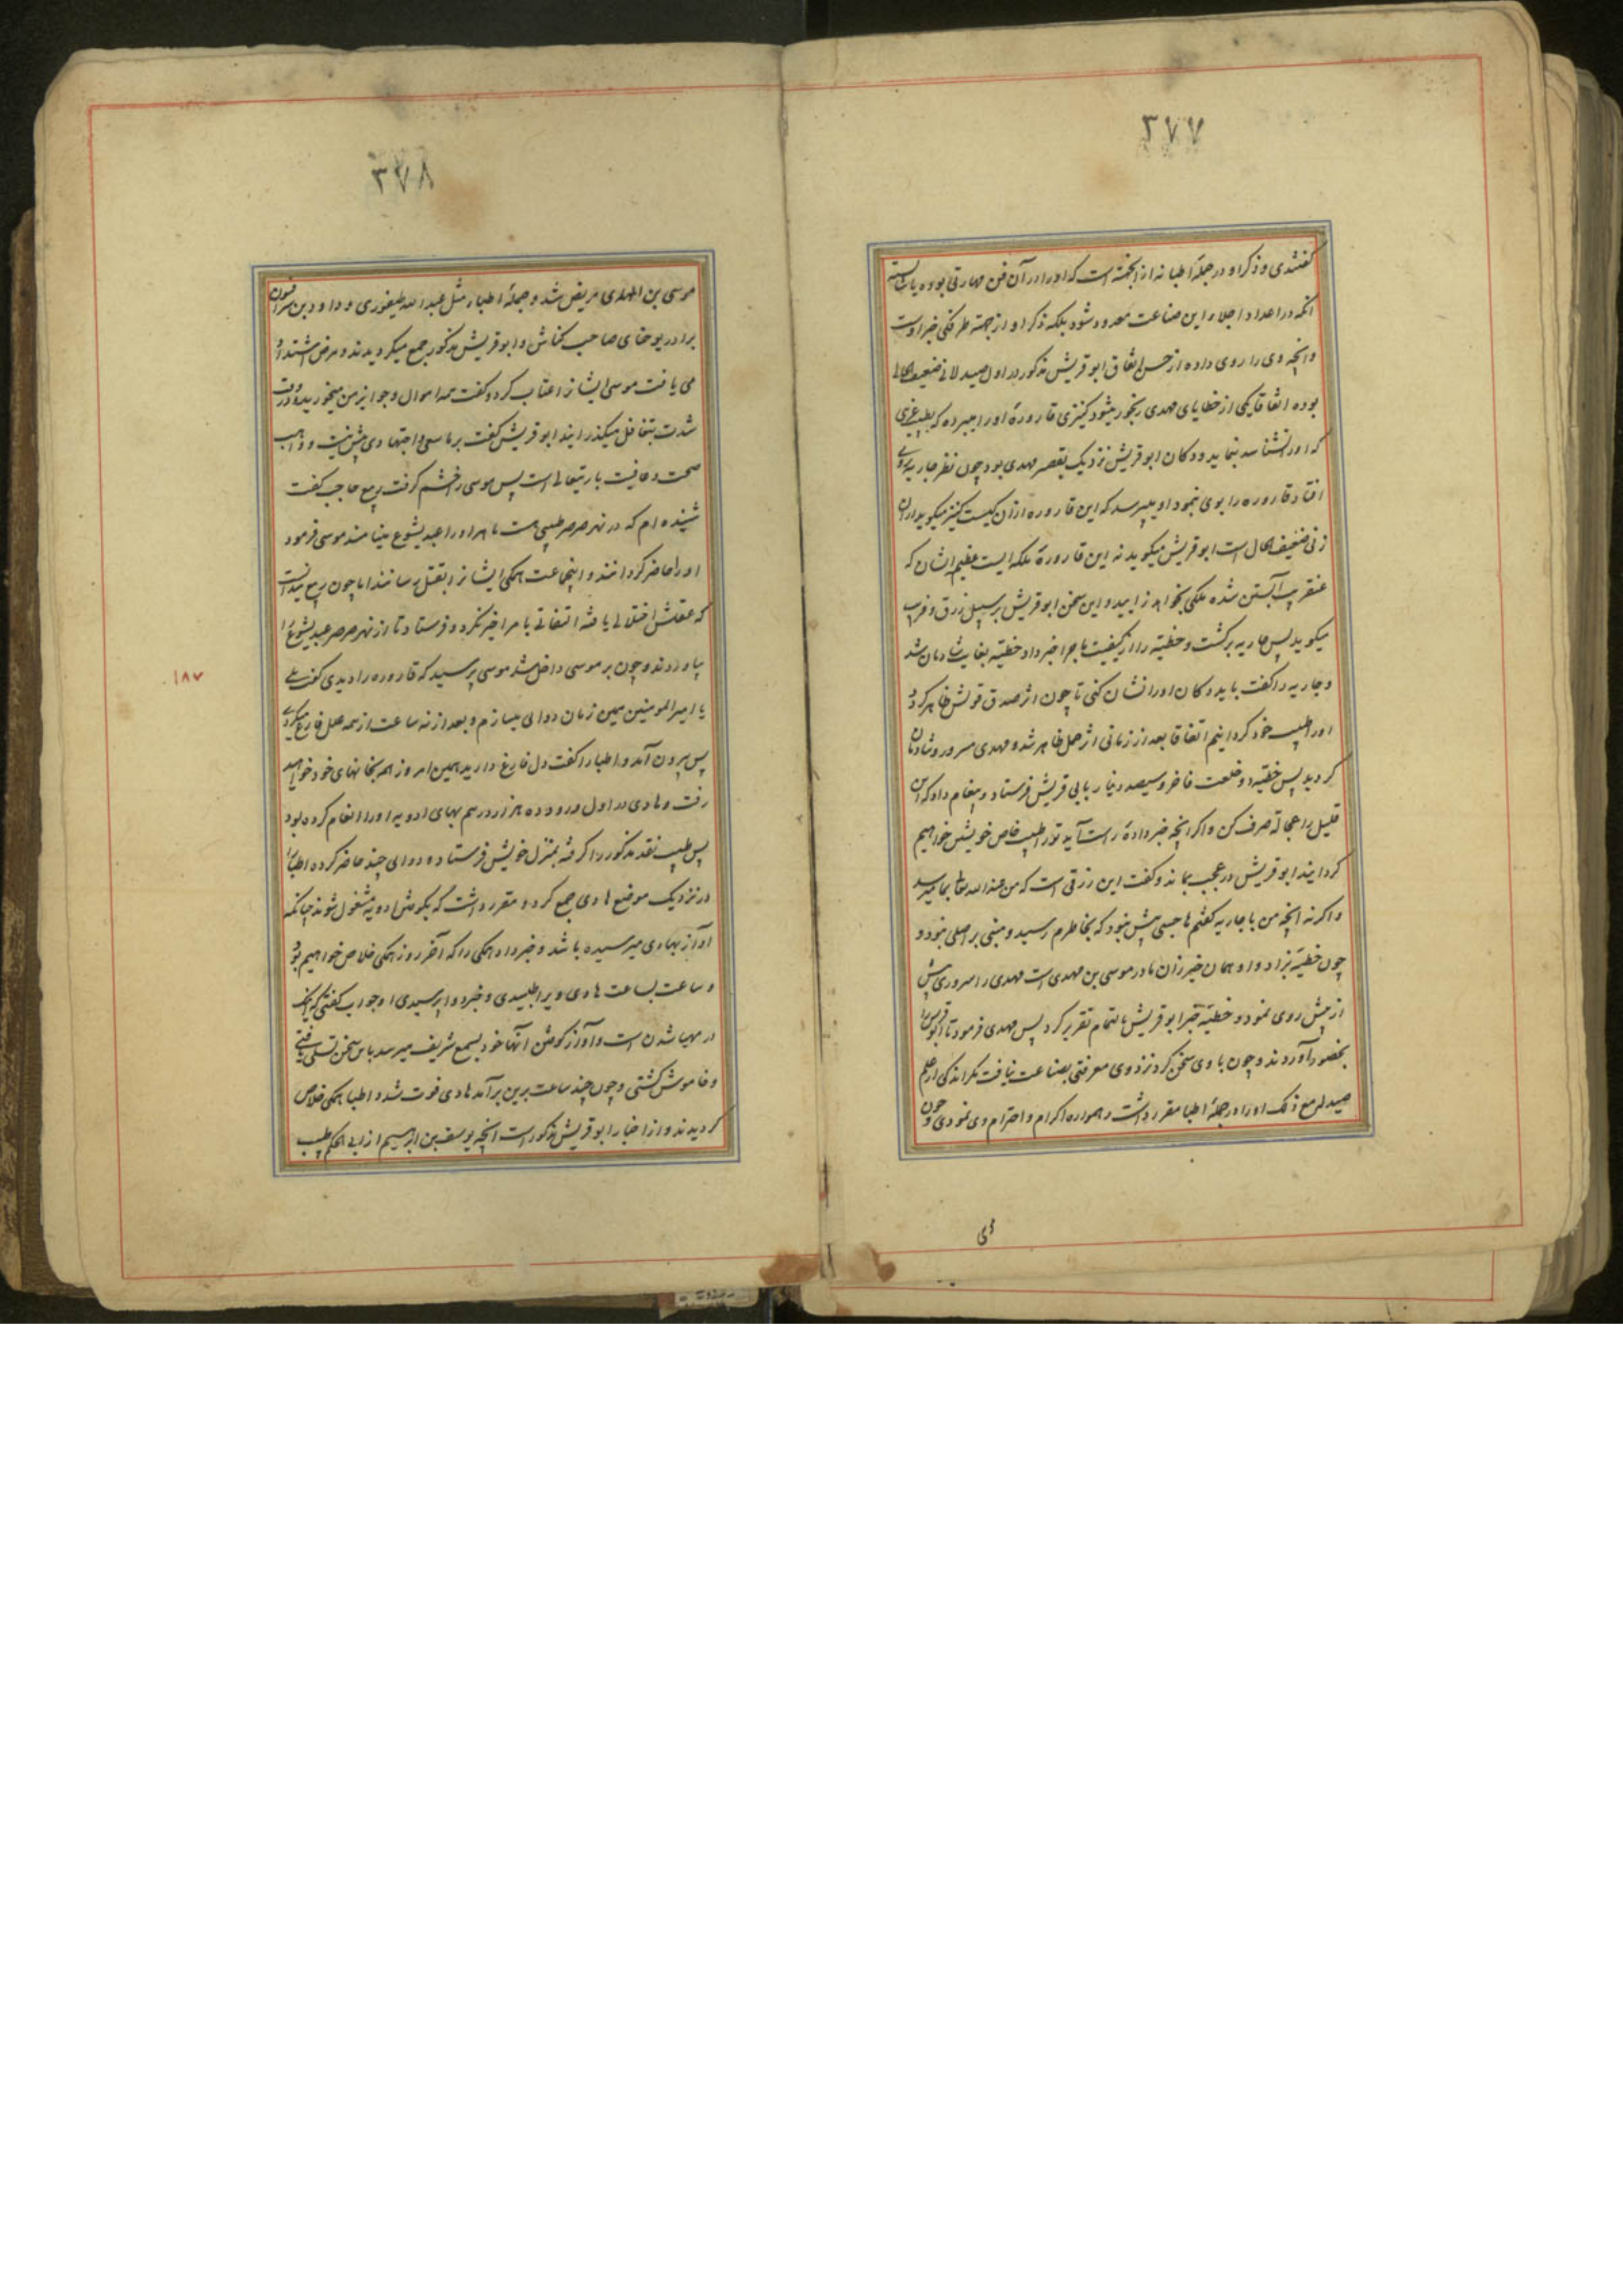 ۳۷۷
گفتندی و ذکر او در جملهٔ اطبا نه از آنجهة است که او را در آن فن مهارتی بوده یا شایسته
آنکه در اعداد اجلاء این صناعت معدود شود بلکه ذکر او از جهة طرفگی خبر اوست
و آنچه وی را روی داده از حسن اتفاق ابو قریش مذکور در اول صیدلانی ضعیف الحالی
بوده اتفاقا یکی از حظایای مهدی رنجور میشود کنیزی قارورهٔ او را میبرده که بطبیب غریبی
که او را نشناسد بنماید و دکان ابو قریش نزدیک بقصر مهدی بود چون نظر جاریه بر وی
افتاد قاروره را بوی نمود او میپرسد که این قاروره از آن کیست کنیز میگوید از آن
زنی ضعیف الحال است ابو قریش میگوید نه این قارورهٔ ملکه ایست عظیم الشان که
عنقریب آبستن شده ملکی بخواهد زایید و این سخن ابو قریش بر سبیل زرق و فریب
میگوید پس جاریه برگشت و حظیه را از کیفیت ماجرا خبر داد حظیه بغایت شادمان شد
و جاریه را گفت باید دکان او را نشان کنی تا چون اثر صدق قولش ظاهر گردد
او را طبیب خود گردانیم اتفاقا بعد از زمانی اثر حمل ظاهر شد و مهدی مسرور و شادمان
گردید پس حظیه دو خلعت فاخر و سیصد دینار بابی قریش فرستاد و پیغام داد که این
قلیل را عجالة صرف کن و اگر آنچه خبر دادهٔ راست آید تو را طبیب خاص خویش خواهیم
گردانید ابو قریش در عجب بماند و گفت این رزقی است که من عند الله تعالی بما میرسد
و اگر نه آنچه من با جاریه گفتم هاجسی بیش نبود که بخاطرم رسید و مبنی بر اصلی نبود و
چون حظیه بزاد و او همان خیزران مادر موسی بن مهدی است مهدی را سروری بیش
از پیش روی نمود و حظیه خبر ابو قریش بالتمام تقریر کرد پس مهدی فرمود تا ابو قریش را
بحضور آوردند و چون با وی سخن کرد نزد وی معرفتی بصناعت نیافت مگر اندکی از علم
صیدله مع ذلک او را در جملهٔ اطبا مقرر داشت و همواره اکرام و احترام وی نمودی و چون
۳۷۸
موسی بن المهدی مریض شد و جملهٔ اطباء مثل عبد الله طیفوری و داود بن سرافیون
برادر یوحنای صاحب کناش و ابو قریش مذکور جمع میگردیدند و مرض اشتداد
می یافت موسی ایشانرا عتاب کرد و گفت همه اموال و جوایز من میخورید و در وقت
شدت بتغافل میگذرانید ابو قریش گفت بر ما سعی و اجتهادی بیش نیست و واهب
صحت و عافیت باریتعالی است پس موسی را خشم گرفت ربیع حاجب گفت
شنیده ام که در نهر صرصر طبیبی هست ماهر او را عبدیشوع مینامند موسی فرمود
او را حاضر گردانند و اینجماعت همگی ایشانرا بقتل رسانند اما چون ربیع میدانست
که عقلش اختلالی یافته التفاتی بامر اخیر نکرد و فرستاد تا از نهر صرصر عبدیشوع را
بیاوردند و چون بر موسی داخل شد موسی پرسید که قاروره را دیدی گفت بلی
یا امیر المومنین همین زمان دوائی میسازم و بعد از نه ساعت از همه علل فارغ میگردی
پس بیرون آمد و اطبا را گفت دل فارغ دارید همین امروز همه بخانهای خود خواهید
رفت و هادی در اول ورود ده هزار درهم بهای ادویه او را انعام کرده بود
پس طبیب نقد مذکور را گرفته بمنزل خویش فرستاد و دوای چند حاضر کرده اطبا را
در نزدیک موضع هادی جمع کرد و مقرر داشت که بکوفتن ادویه مشغول شوند چنانکه
آواز بهادی میرسیده باشد و خبر داد همگی را که آخر روز همگی خلاص خواهیم بود
و ساعت بساعت هادی ویرا طلبیدی و خبر دوا پرسیدی او جواب گفتی که اینک
در مهیا شدن است و آواز کوفتن آنها خود بسمع شریف میرسد باین سخن تسلی یافتی
و خاموش گشتی و چون چند ساعت برین برآمد هادی فوت شد و اطبا همگی خلاص
گردیدند و از اخبار ابو قریش مذکور است آنچه یوسف بن ابراهیم از ابی الحکم طبیب
۱۸۷